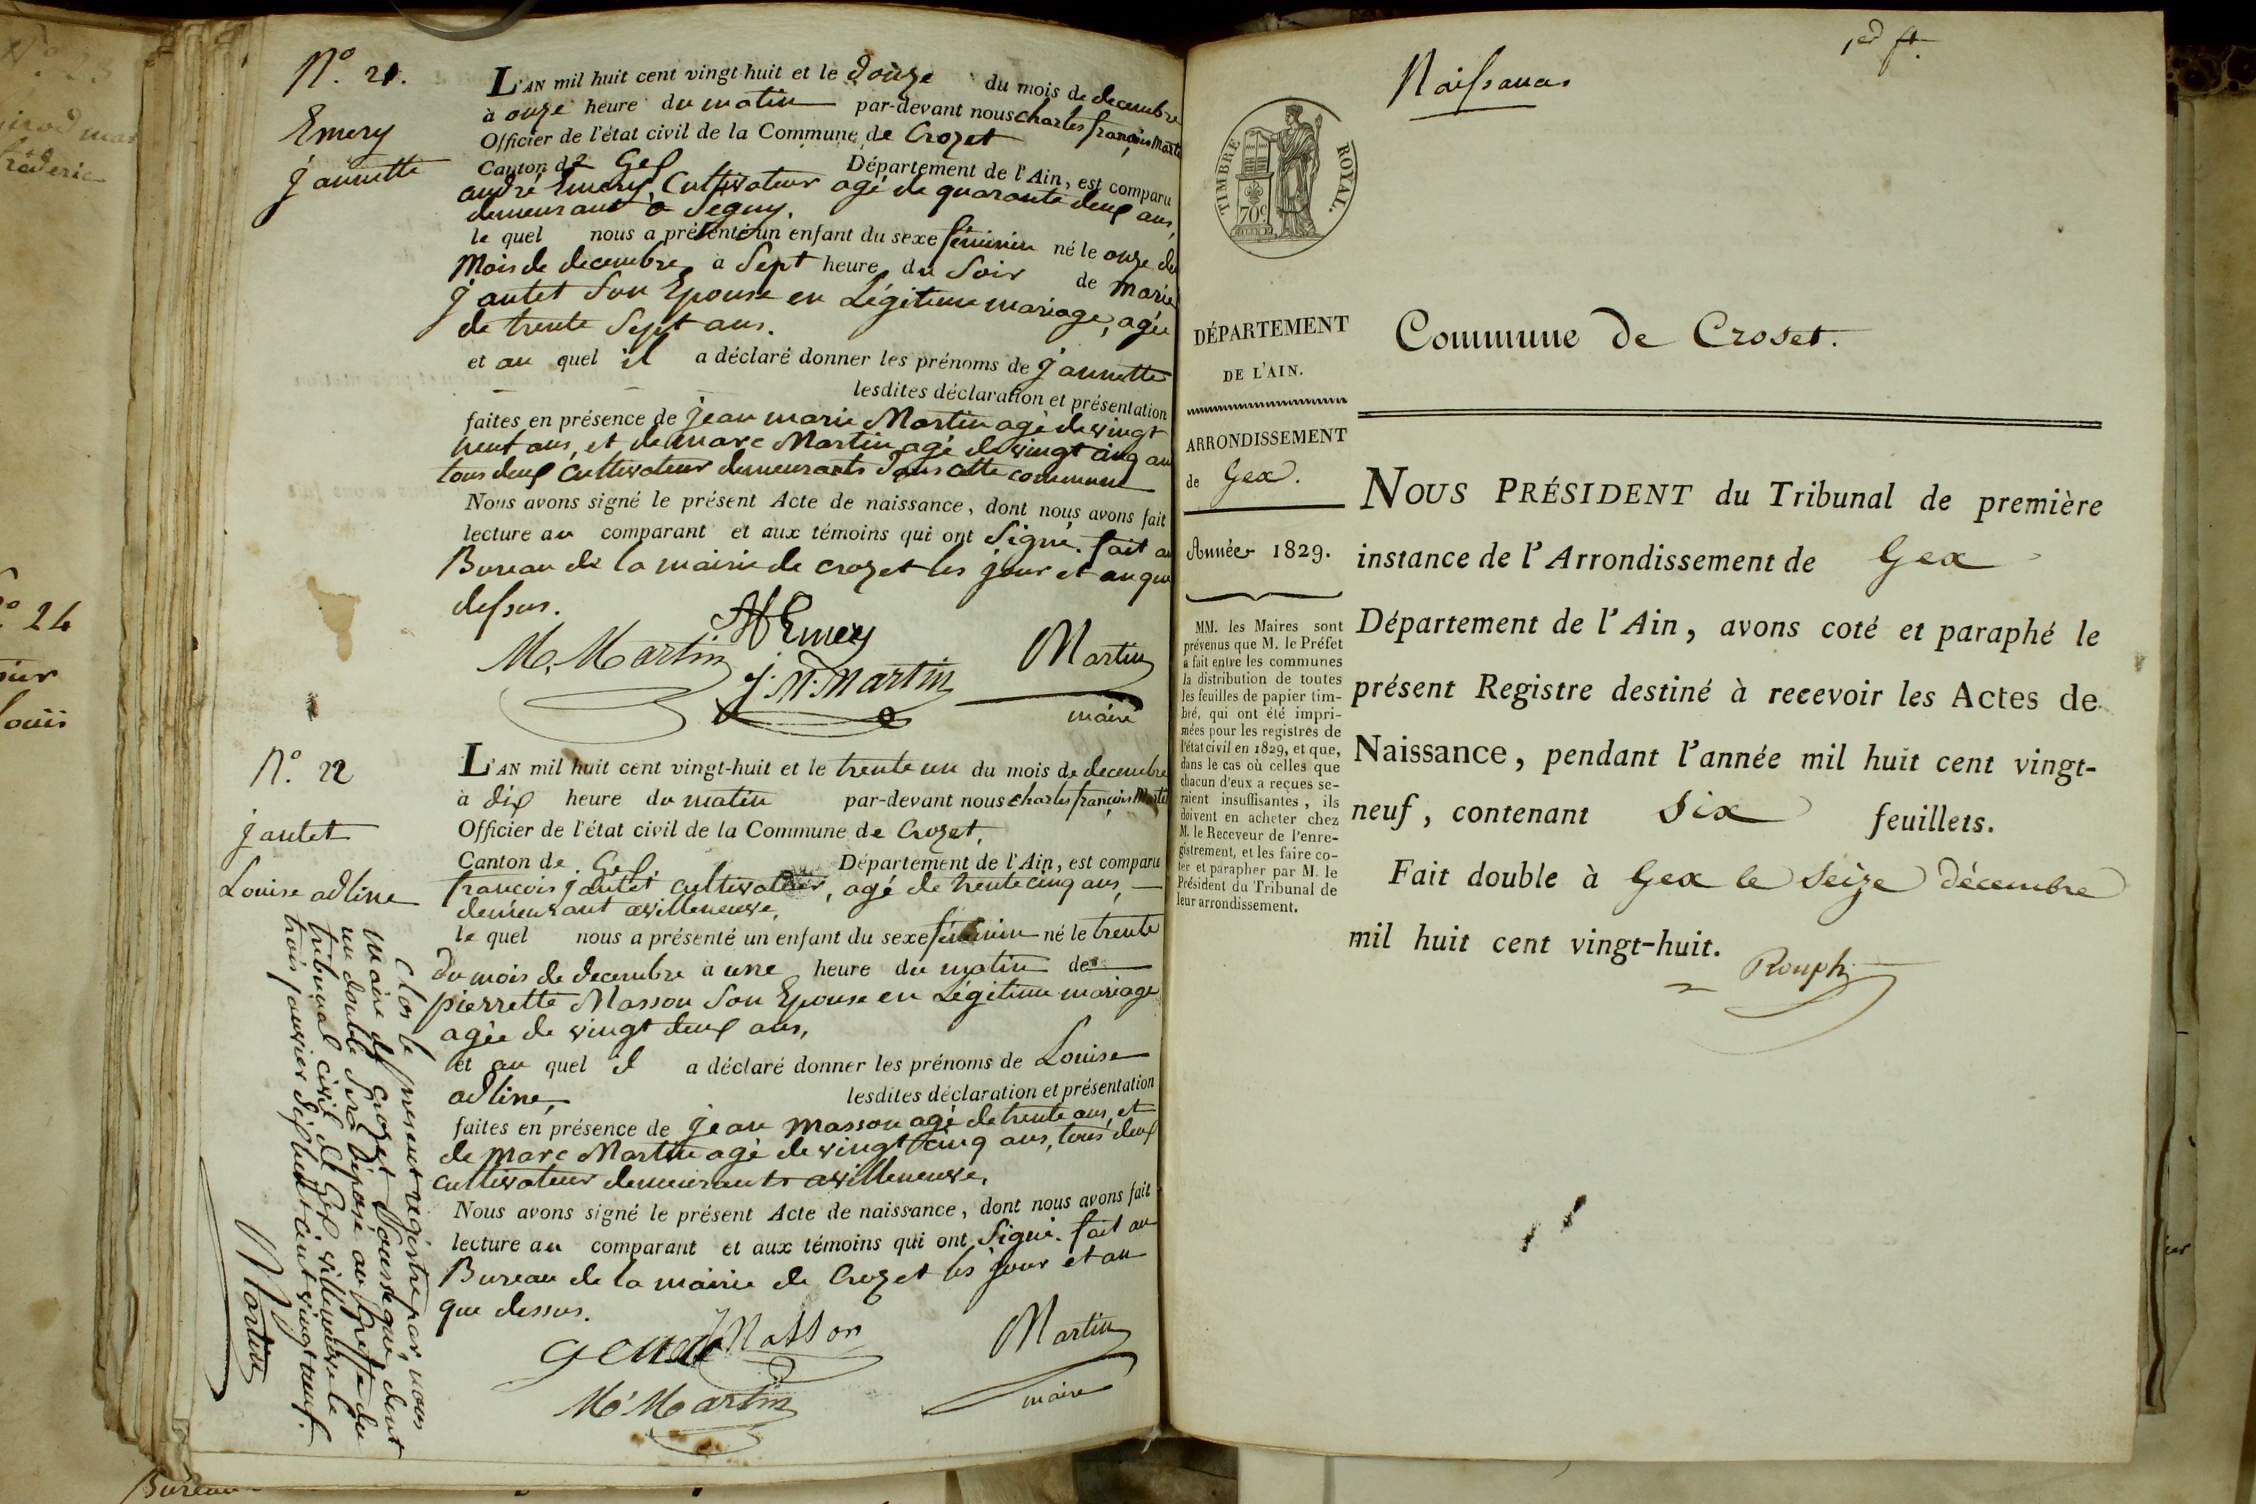 N.º 21.
Emery
jannette
L'AN mil huit cent vingt-huit et le douze du mois de decembre
à onze heure du matin par-devant nous charles françois Martin
Officier de l'état civil de la Commune de Crozet
Canton de Gex Département de l'Ain, est comparu
andré Emery, Cultivateur agé de quarante deux ans,
demeurant a Segny.
le quel nous a présenté un enfant du sexe féminin né le onze du
Mois de decembre, à Sept heure du Soir de Marie
jantet Son Epouse en Légitime mariage, agée
de trente Sept ans.
et au quel il a déclaré donner les prénoms de jannette
lesdites déclaration et présentation
faites en présence de jean marie Martin agé de vingt
neuf ans, et de marc Martin agé de vingt cinq ans
tous deux cultivateur demeurants dans cette commune
Nous avons signé le présent Acte de naissance, dont nous avons fait
lecture au comparant et aux témoins qui ont Signé. fait au
Bureau de la mairie de crozet les jour et an que
dessus.
Emery
M. Martin
J. M. Martin
Martin
maire
N.º 22
jantet
Louise adline
L'AN mil huit cent vingt-huit et le trente un du mois de decembre
à dix heure du matin par-devant nous charles françois Martin
Officier de l'état civil de la Commune de Crozet,
Canton de Gex Département de l'Ain, est comparu
francois jantet cultivateur, agé de trente cinq ans,
demeurant a villeneuve,
le quel nous a présenté un enfant du sexe féminin né le trente
du mois de decembre à une heure du matin de
pierrette Masson Son Epouse en Légitime mariage
agée de vingt deux ans,
et au quel il a déclaré donner les prénoms de Louise
adline, lesdites déclaration et présentation
faites en présence de jean masson agé de trente ans, et
de marc Martin agé de vingt cinq ans, tous deux
cultivateur demeurants a villeneuve,
Nous avons signé le présent Acte de naissance, dont nous avons fait
lecture au comparant et aux témoins qui ont Signé. fait au
Bureau de la mairie de Crozet les jour et an
que dessus.
Masson
Martin
M. Martin
maire
Clos le present registre par nous
maire de Crozet Soussigné, dont
un double Sera déposé au Greffe du
tribunal civil de Gex villeneuve le
trois janvier dix huit cent vingt neuf.
Martin
N.º 24
Louis
Bureau
1er ft.
Naissances
TIMBRE ROYAL.
70 c
DÉPARTEMENT
DE L'AIN.
ARRONDISSEMENT
de Gex.
Année 1829.
MM. les Maires sont
prévenus que M. le Préfet
a fait entre les communes
la distribution de toutes
les feuilles de papier tim-
bré, qui ont été impri-
mées pour les registres de
l'état civil en 1829, et que,
dans le cas où celles que
chacun d'eux a reçues se-
raient insuffisantes, ils
doivent en acheter chez
M. le Receveur de l'enre-
gistrement, et les faire co-
ter et parapher par M. le
Président du Tribunal de
leur arrondissement.
Commune de Croset.
NOUS PRÉSIDENT du Tribunal de première
instance de l'Arrondissement de Gex
Département de l'Ain, avons coté et paraphé le
présent Registre destiné à recevoir les Actes de
Naissance, pendant l'année mil huit cent vingt-
neuf, contenant Six feuillets.
Fait double à Gex le Seize décembre
mil huit cent vingt-huit.